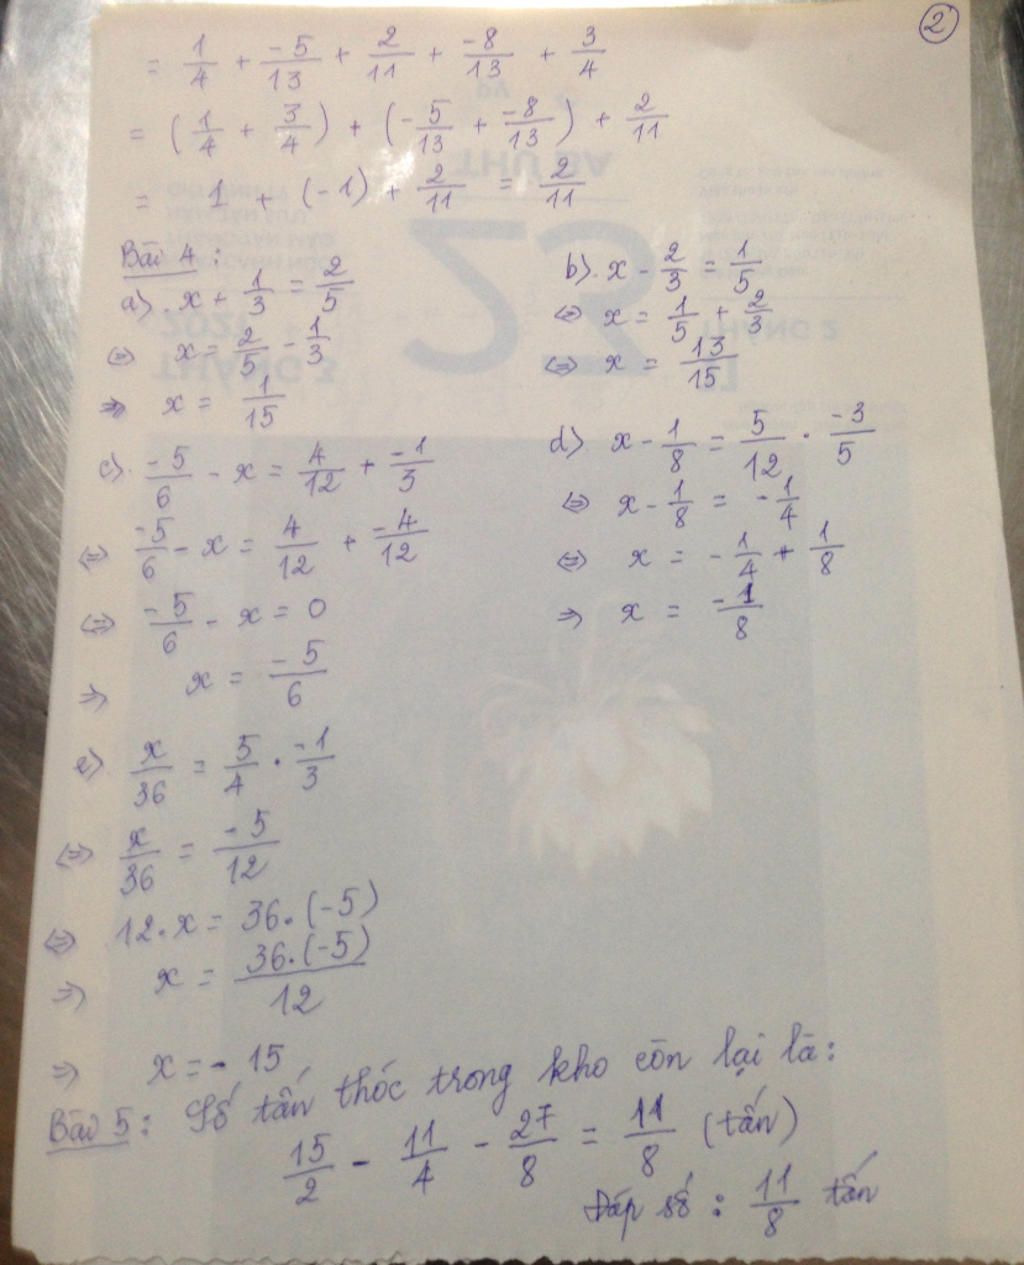 2
= 1/4 + -5/13 + 2/11 + -8/13 + 3/4
= (1/4 + 3/4) + (-5/13 + -8/13) + 2/11
= 1 + (-1) + 2/11 = 2/11
Bài 4 :
a). x + 1/3 = 2/5
⇔ x = 2/5 - 1/3
⇒ x = 1/15
b). x - 2/3 = 1/5
⇔ x = 1/5 + 2/3
⇔ x = 13/15
c). -5/6 - x = 4/12 + -1/3
⇔ -5/6 - x = 4/12 + -4/12
⇔ -5/6 - x = 0
⇒ x = -5/6
d) x - 1/8 = 5/12 . -3/5
⇔ x - 1/8 = -1/4
⇔ x = -1/4 + 1/8
⇒ x = -1/8
e) x/36 = 5/4 . -1/3
⇔ x/36 = -5/12
⇔ 12.x = 36.(-5)
⇒ x = 36.(-5)/12
⇒ x = - 15
Bài 5 : Số tấn thóc trong kho còn lại là:
15/2 - 11/4 - 27/8 = 11/8 (tấn)
Đáp số : 11/8 tấn